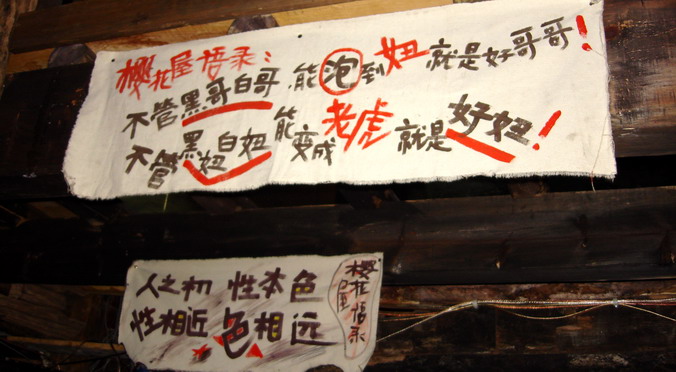 樱花屋悟录：
不管黑哥白哥 能泡到妞就是好哥哥！
不管黑妞白妞能变成老虎就是好妞！
人之初 性本色
性相近 色相远
樱花屋悟录